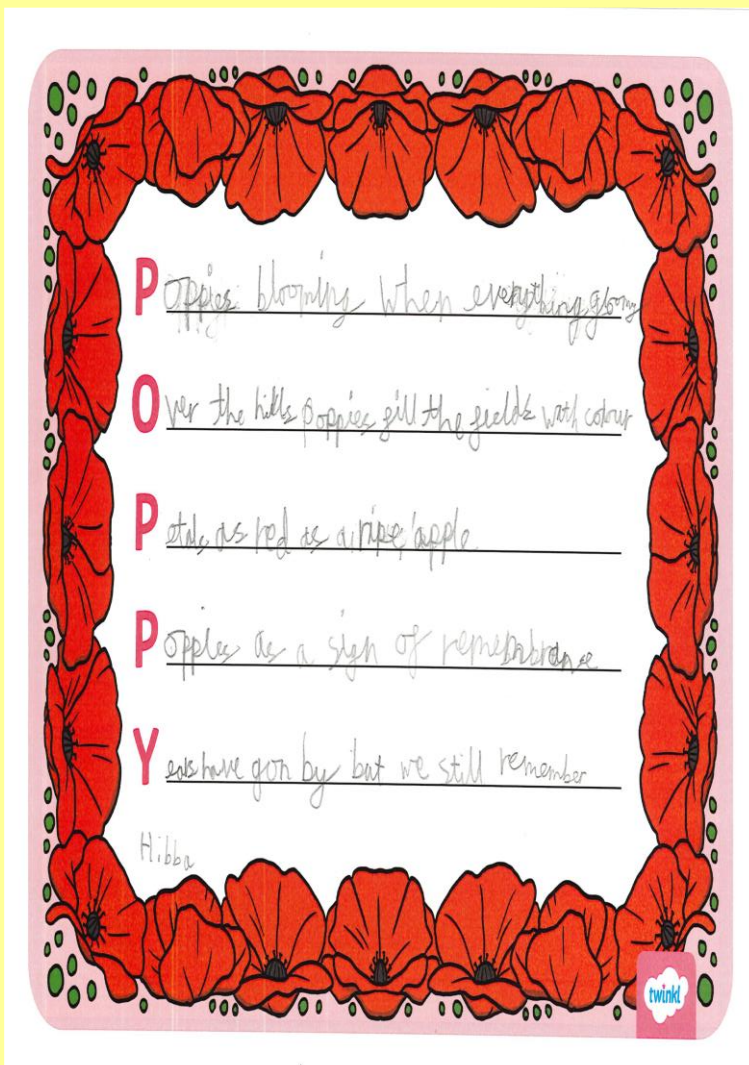 Poppies blooming when everything gloomy
Over the hills poppies fill the fields with colour
Petals as red as a ripe apple
Poppies as a sign of remembrance
Years have gon by but we still remember
Hibba
twinkl